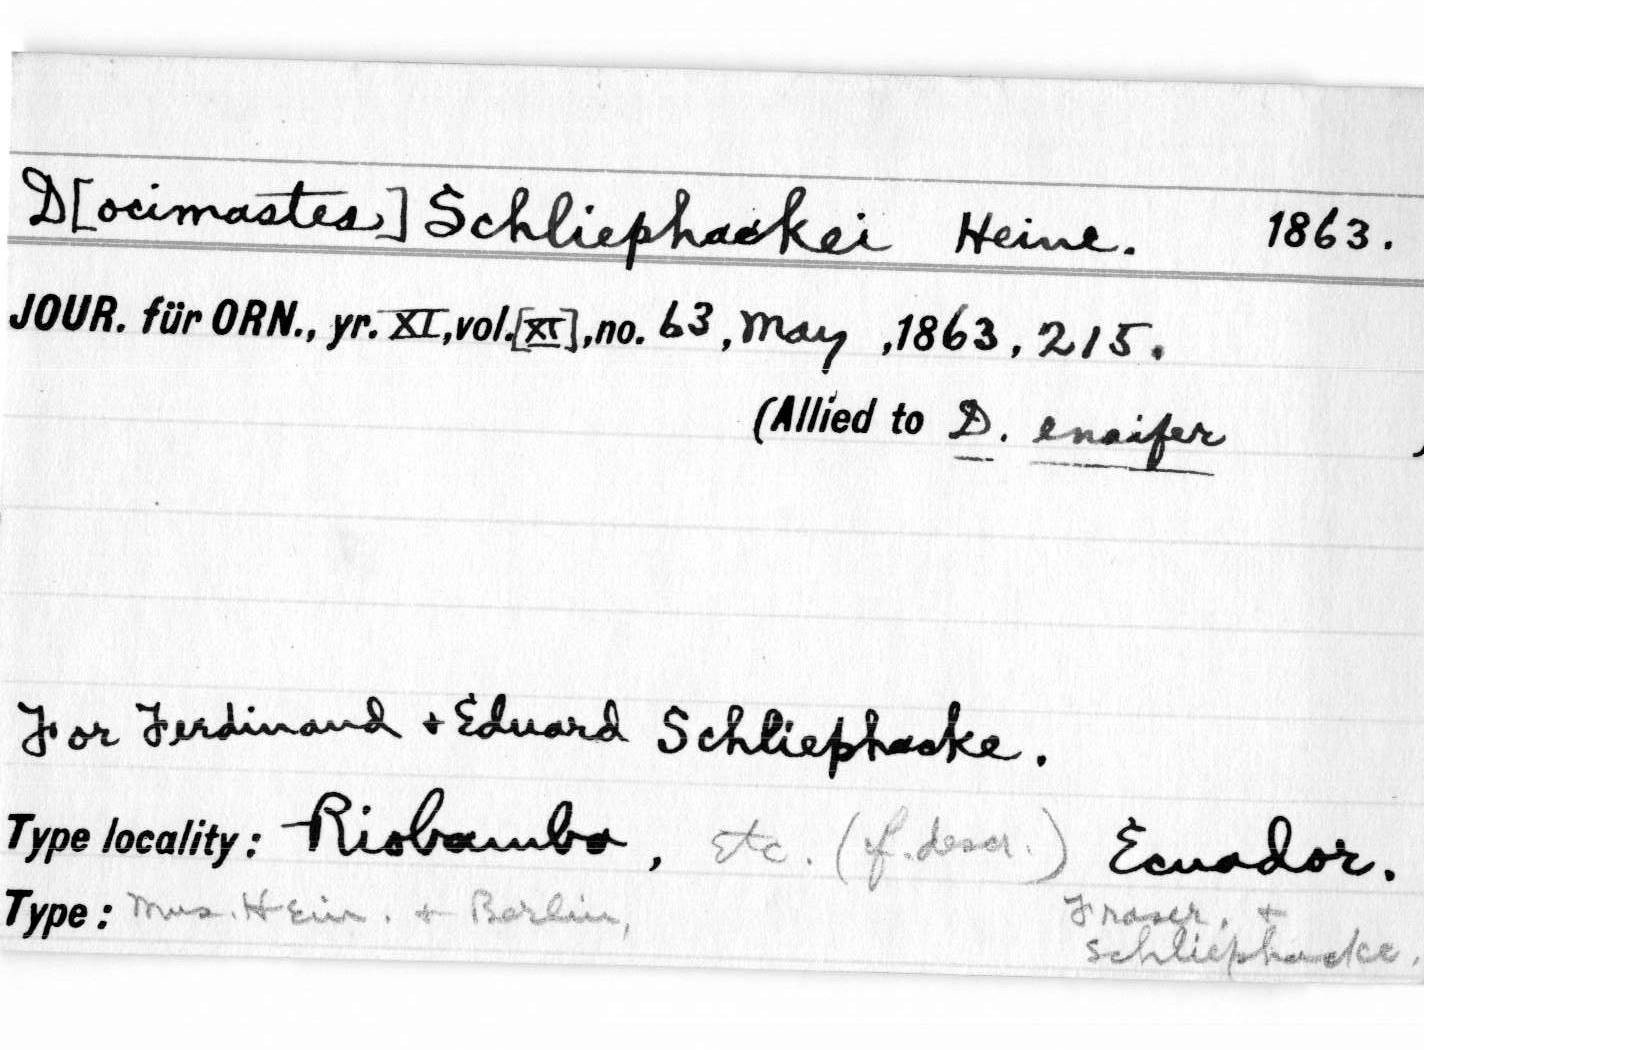 D[ocimastes] Schliephackei Heine. 1863.
JOUR. für ORN., yr. XI, vol. [XI], no. 63, May, 1863, 215.
(Allied to D. ensifer )
For Ferdinand + Eduard Schliephacke.
Type locality: Riobamba, etc. (cf. descr.) Ecuador.
Type: Mus. Hein. + Berlin, Fraser, +
Schliephacke.